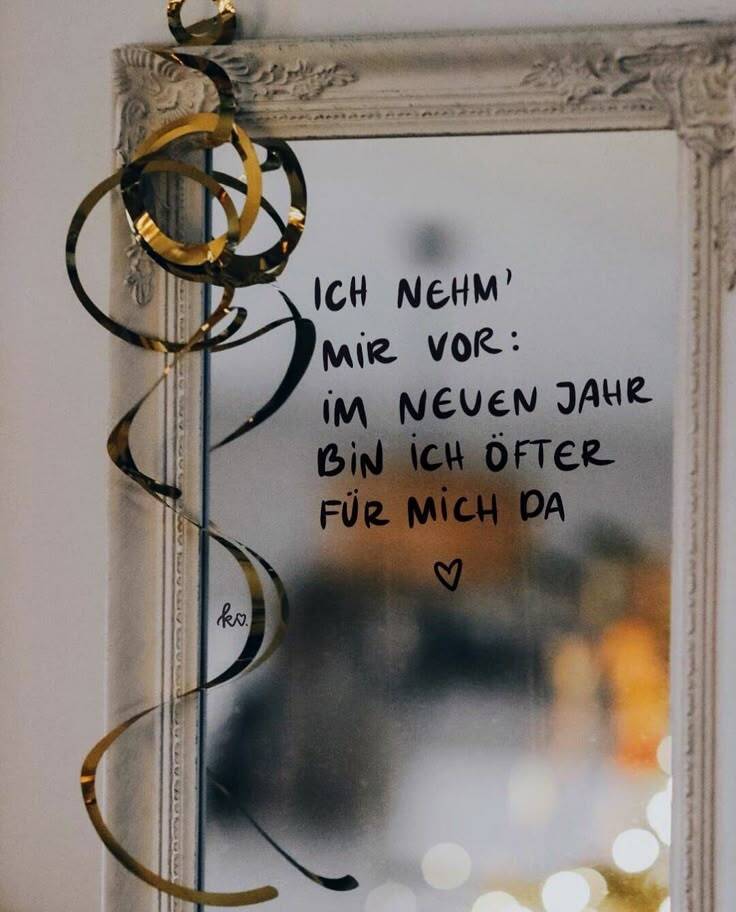 ICH NEHM'
MIR VOR:
IM NEUEN JAHR
BIN ICH ÖFTER
FÜR MICH DA
♡
k♡.